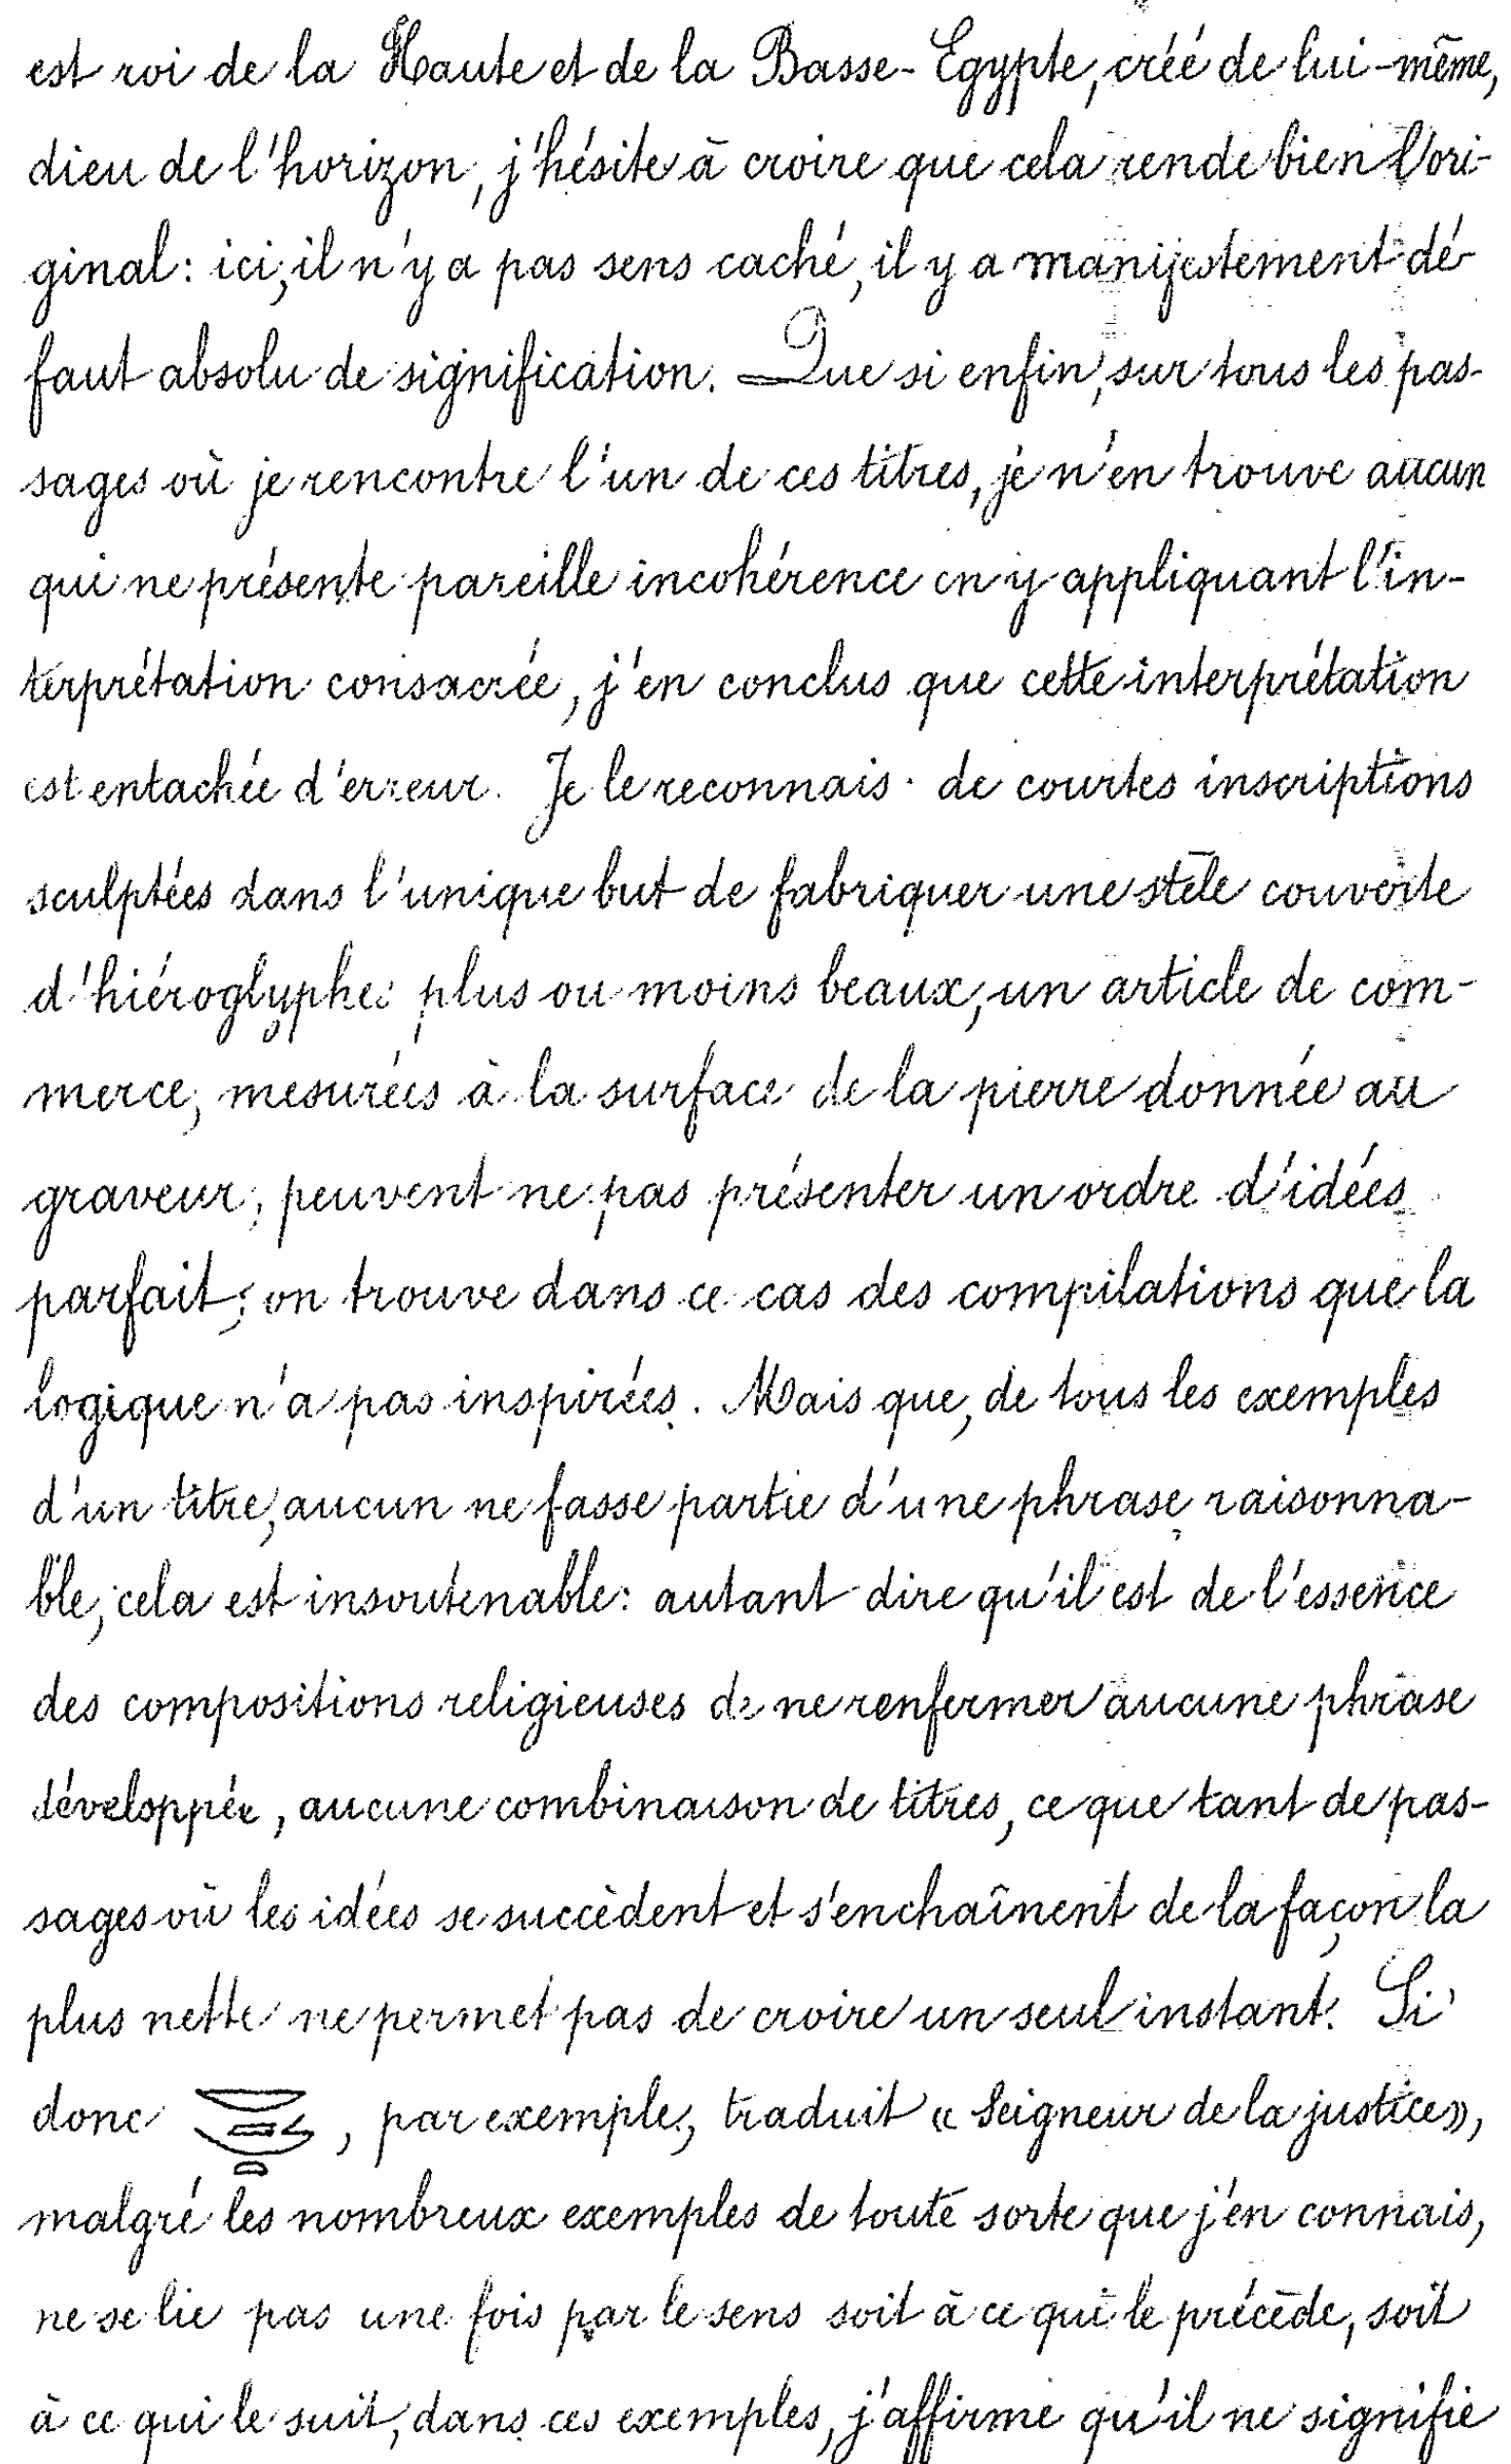 est roi de la Haute et de la Basse-Égypte, créé de lui-même,
dieu de l'horizon, j'hésite à croire que cela rende bien l'ori-
ginal: ici, il n'y a pas sens caché, il y a manifestement dé-
faut absolu de signification. — Que si enfin, sur tous les pas-
sages où je rencontre l'un de ces titres, je n'en trouve aucun
qui ne présente pareille incohérence en y appliquant l'in-
terprétation consacrée, j'en conclus que cette interprétation
est entachée d'erreur. Je le reconnais: de courtes inscriptions
sculptées dans l'unique but de fabriquer une stèle couverte
d'hiéroglyphes plus ou moins beaux, un article de com-
merce, mesurées à la surface de la pierre donnée au
graveur, peuvent ne pas présenter un ordre d'idées
parfait; on trouve dans ce cas des compilations que la
logique n'a pas inspirées. Mais que, de tous les exemples
d'un titre, aucun ne fasse partie d'une phrase raisonna-
ble, cela est insoutenable: autant dire qu'il est de l'essence
des compositions religieuses de ne renfermer aucune phrase
développée, aucune combinaison de titres, ce que tant de pas-
sages où les idées se succèdent et s'enchaînent de la façon la
plus nette ne permet pas de croire un seul instant. Si
donc , par exemple, traduit « Seigneur de la justice »,
malgré les nombreux exemples de toute sorte que j'en connais,
ne se lie pas une fois par le sens soit à ce qui le précède, soit
à ce qui le suit, dans ces exemples, j'affirme qu'il ne signifie